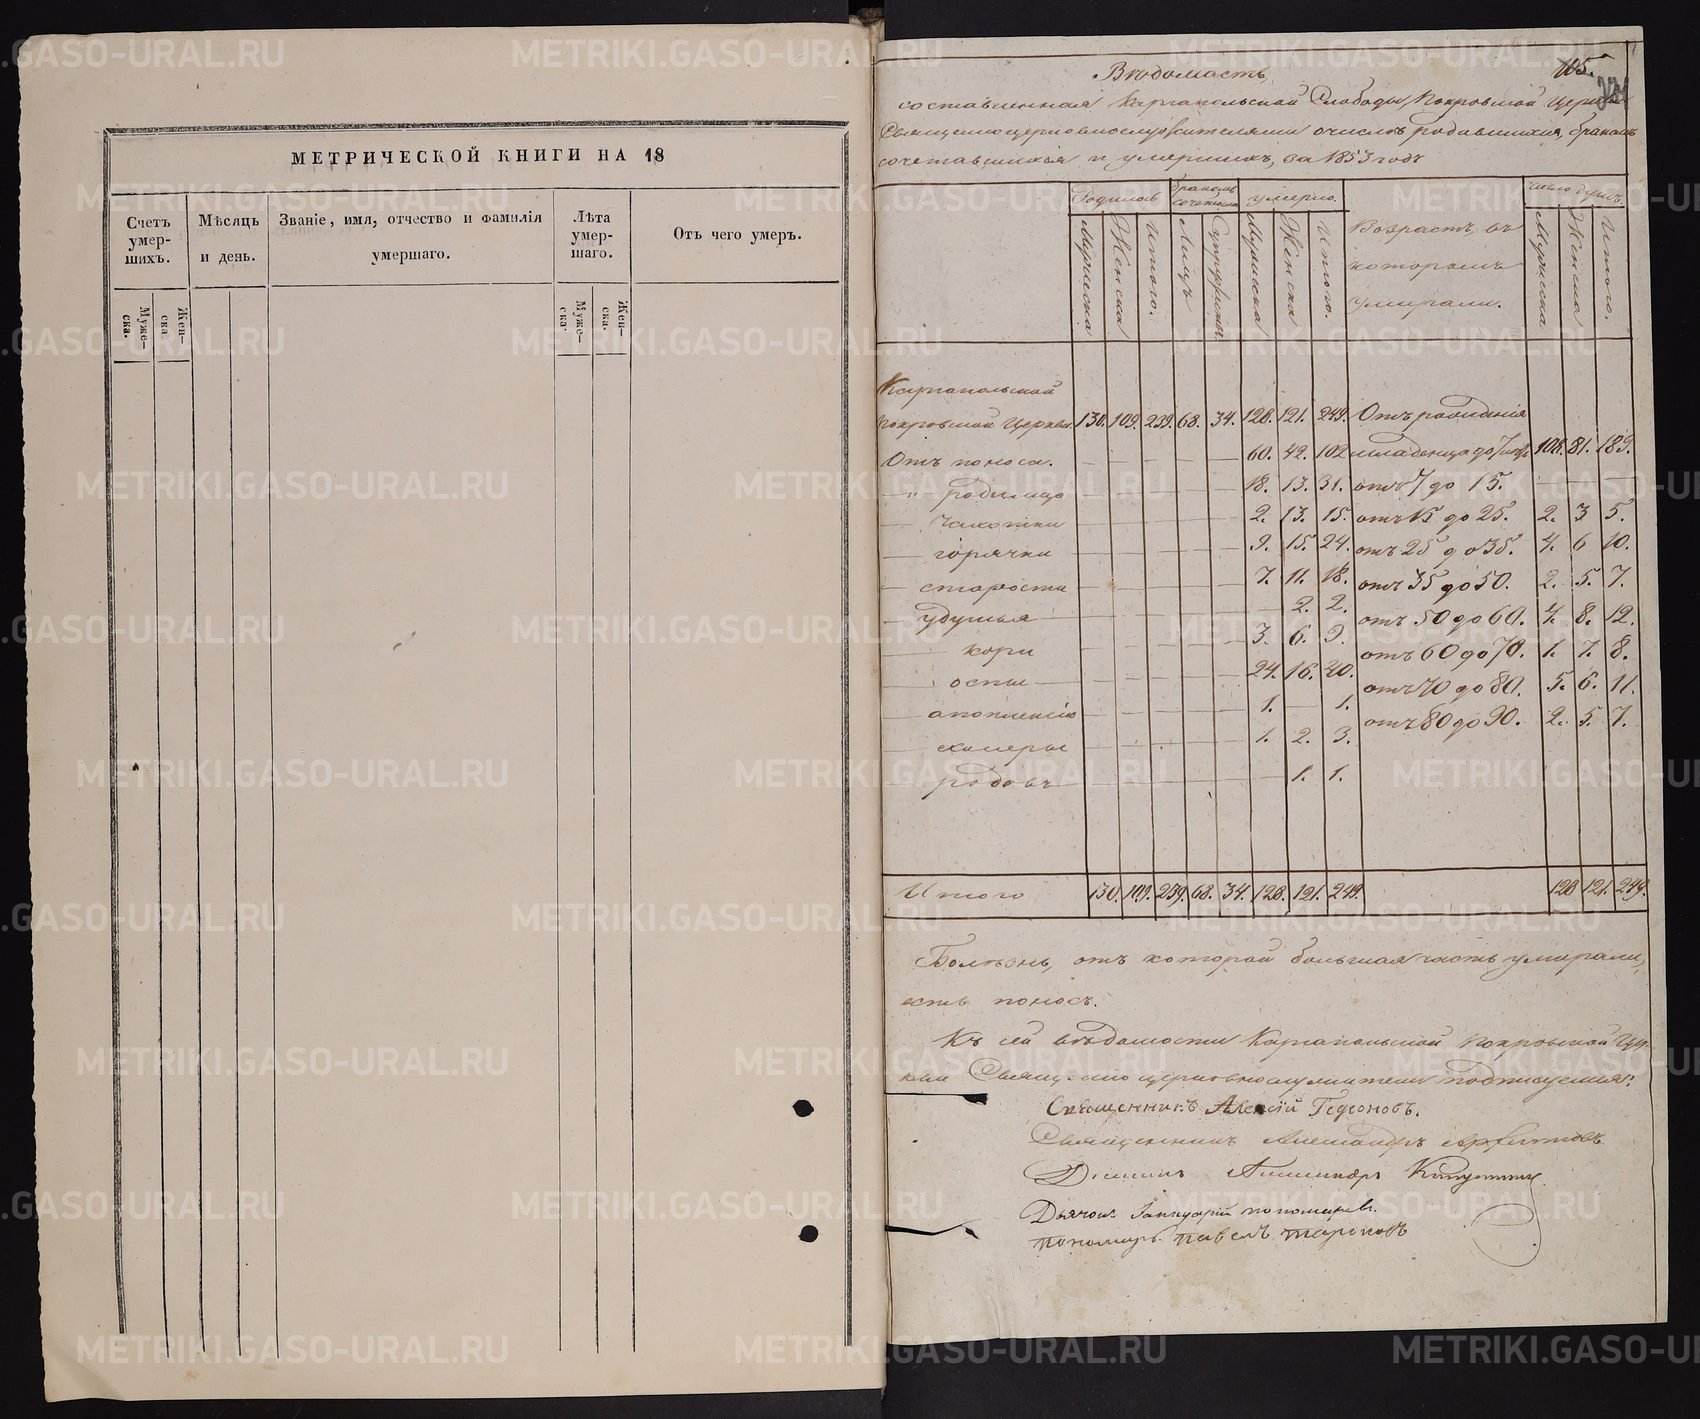 МЕТРИЧЕСКОЙ КНИГИ НА 18
Счетъ умер-шихъ.
Мѣсяцъ и день.
Званіе, имя, отчество и фамилія умершаго.
Лѣта умер-шаго.
Отъ чего умеръ.
Муже-ска.
Жен-ска
Муже-ска.
Жен-ска.
115.
Вѣдомость
составленная Каргапольской Слободы Покровской Церкви
Священноцерковнослужителями о числѣ родившихся, бракомъ
сочетавшихся и умершихъ, за 1853 годъ
Родилось
бракомъ сочетались
умерло.
Возрастъ въ которомъ умирали.
число душъ.
Мужеска
Женска
Итого.
Лицъ
Супружествъ
Мужеска
Женска
Итого.
Мужеска
Женска
Итого.
Каргапольской
Покровской Церкви 130. 109. 239. 68. 34. 128. 121. 249. Отъ рожденія
Отъ поноса. 60. 42. 102 младенца до 7 лѣтъ 108. 81. 189.
— " родимца 18. 13. 31. отъ 7 до 15.
— чахотки 2. 13. 15. отъ 15 до 25. 2. 3 5.
— горячки 9. 15. 24. отъ 25 до 35. 4. 6 10.
— старости 7. 11. 18. отъ 35 до 50. 2. 5. 7.
— удушья — 2. 2. отъ 50 до 60. 4. 8. 12.
— кори 3. 6. 9. отъ 60 до 70. 1. 7. 8.
— оспы 24. 16. 40. отъ 70 до 80. 5. 6. 11.
— апоплексіи 1. — 1. отъ 80 до 90. 2. 5. 7.
— холеры 1. 2. 3.
— родовъ — 1. 1.
Итого 130. 109. 239. 68. 34. 128. 121. 249. 128 121. 249.
Болѣзнь, отъ которой большая часть умирали,
есть поносъ.
Къ сей вѣдомости Каргапольской Покровской Цер-
кви Священноцерковнослужители подписуемся:
Священникъ Алексій Гедеоновъ.
Священникъ Александръ
Діаконъ Александръ
Дьячокъ Пономаревъ.
Пономарь Павелъ Топорковъ
METRIKI.GASO-URAL.RU